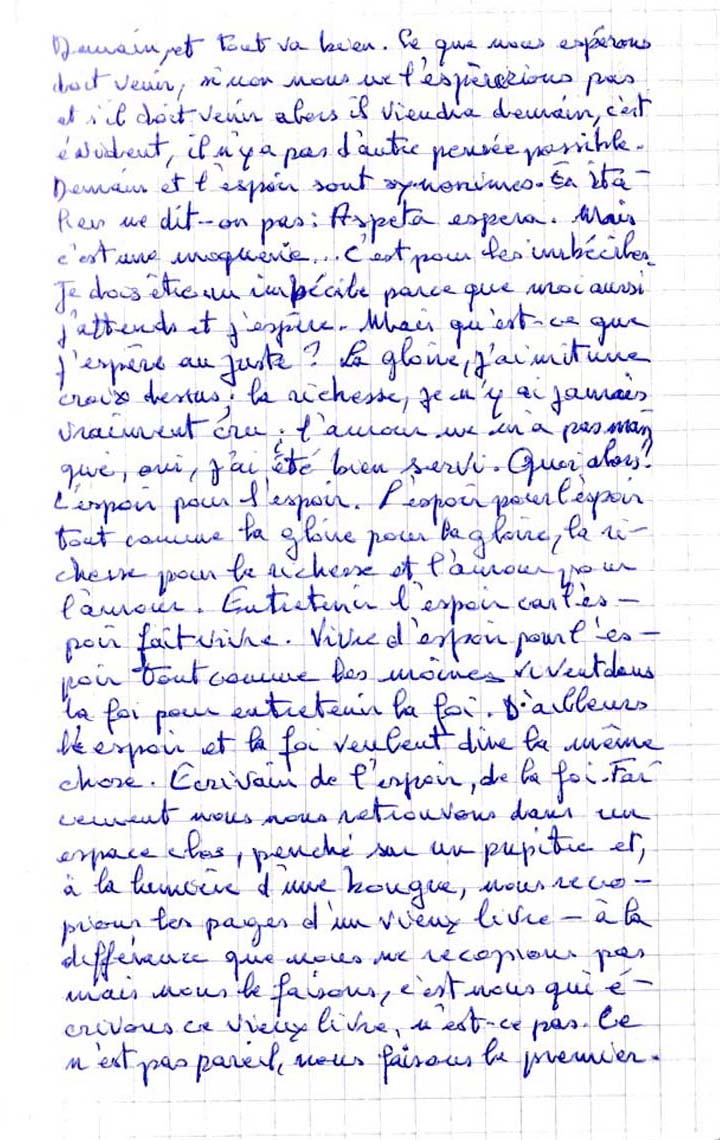 Demain, et tout va bien. Ce que nous espérons
doit venir, sinon nous ne l'espèrerions pas
et s'il doit venir alors il viendra demain, c'est
évident, il n'y a pas d'autre pensée possible.
Demain et l'espoir sont synonimes. En ita-
lien ne dit-on pas: Aspeta espera. Mais
c'est une moquerie... c'est pour les imbéciles.
Je dois être un imbécile parce que moi aussi
j'attends et j'espère. Mais qu'est-ce que
j'espère au juste? La gloire, j'ai mit une
croix dessus; la richesse, je n'y ai jamais
vraiment cru; l'amour ne m'a pas man
qué, oui, j'ai été bien servi. Quoi alors?
L'espoir pour l'espoir. L'espoir pour l'espoir
tout comme la gloire pour la gloire, la ri-
chesse pour la richesse et l'amour pour
l'amour. Entretenir l'espoir car l'es-
poir fait vivre. Vivre d'espoir pour l'es-
poir tout comme les moines vivent dans
la foi pour entretenir la foi. D'ailleurs
l'espoir et la foi veulent dire la même
chose. Écrivain de l'espoir, de la foi. For
cement nous nous retrouvons dans un
espace clos, penché sur un pupitre et,
à la lumière d'une bougie, nous reco-
pions les pages d'un vieux livre - à la
différence que nous ne recopions pas
mais nous le faisons, c'est nous qui é-
crivons ce vieux livre, n'est-ce pas. Ce
n'est pas pareil, nous faisons le premier.